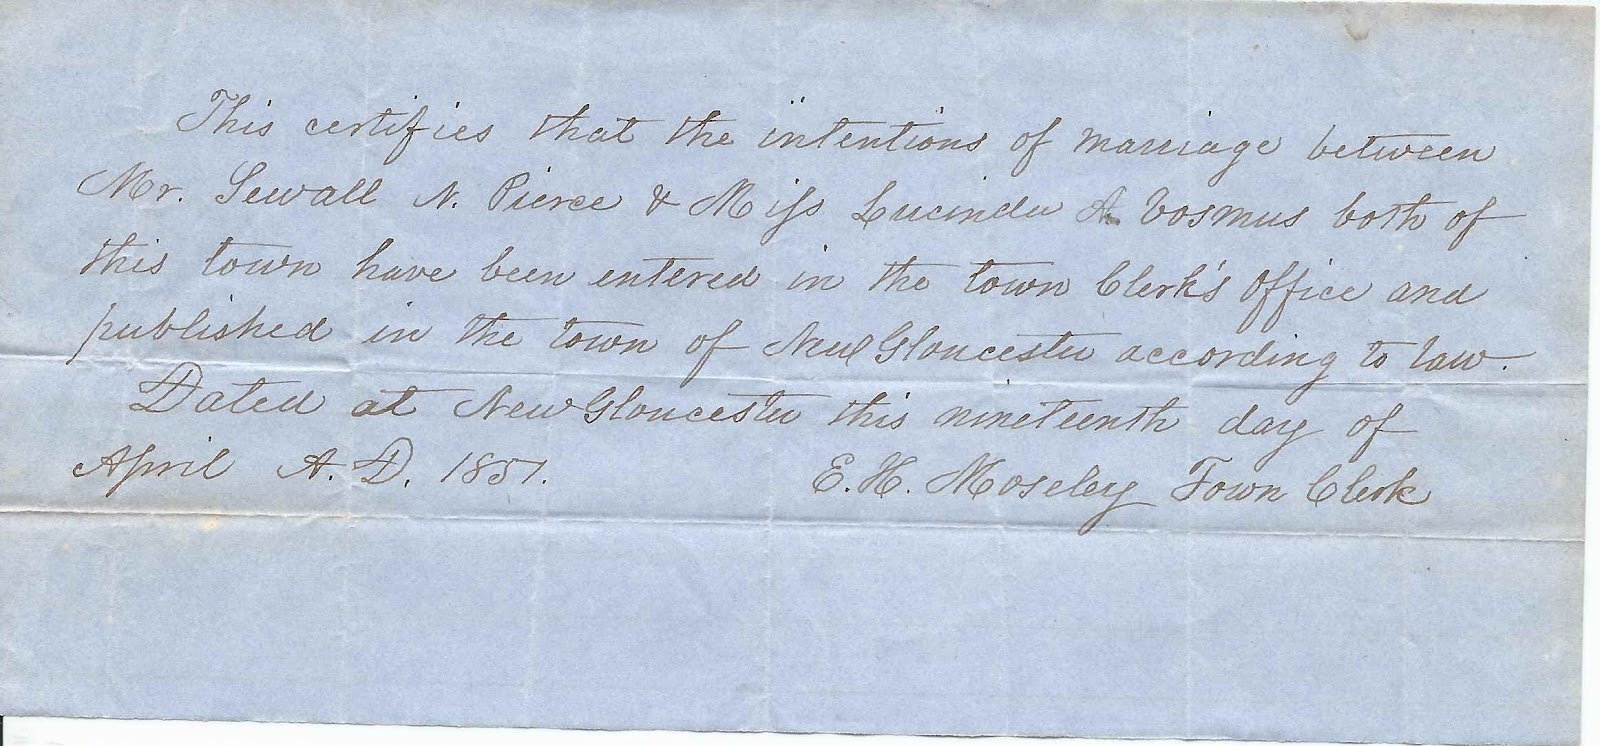 This certifies that the intentions of marriage between
Mr. Sewall N. Pierce & Miss Lucinda A. Vosmus both of
this town have been entered in the town Clerk's Office and
published in the town of New Gloucester according to law.
Dated at New Gloucester this nineteenth day of
April A. D. 1851. E. H. Moseley Town Clerk